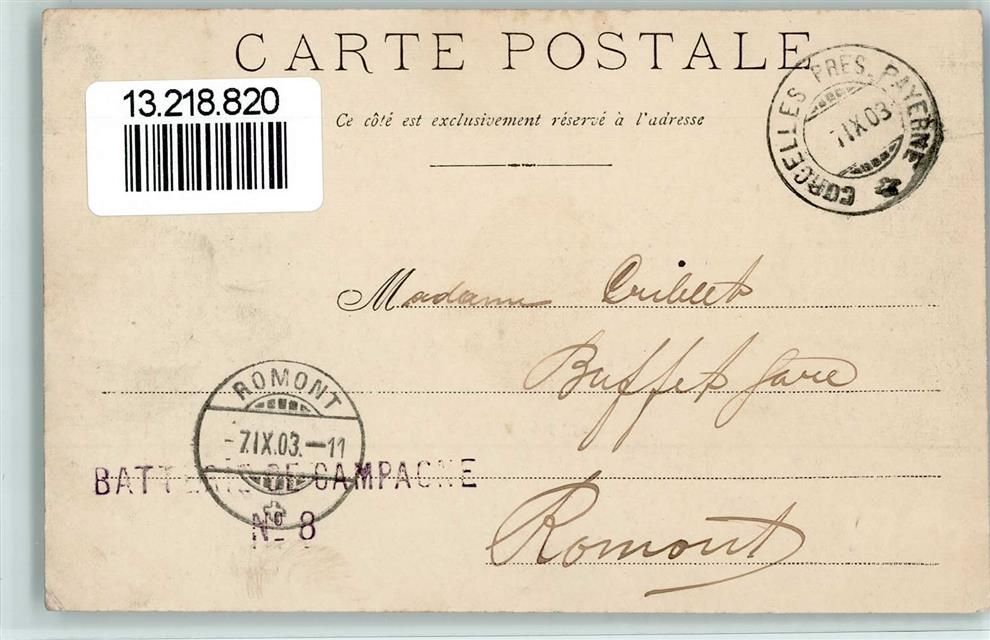 CARTE POSTALE
13.218.820
Ce côté est exclusivement réservé à l'adresse
CORCELLES PRES PAYERNE
7 IX 03
Madame Criblet
Buffet Gare
Romont
ROMONT
-7.IX.03.-11
BATTERIE DE CAMPAGNE
Nº 8